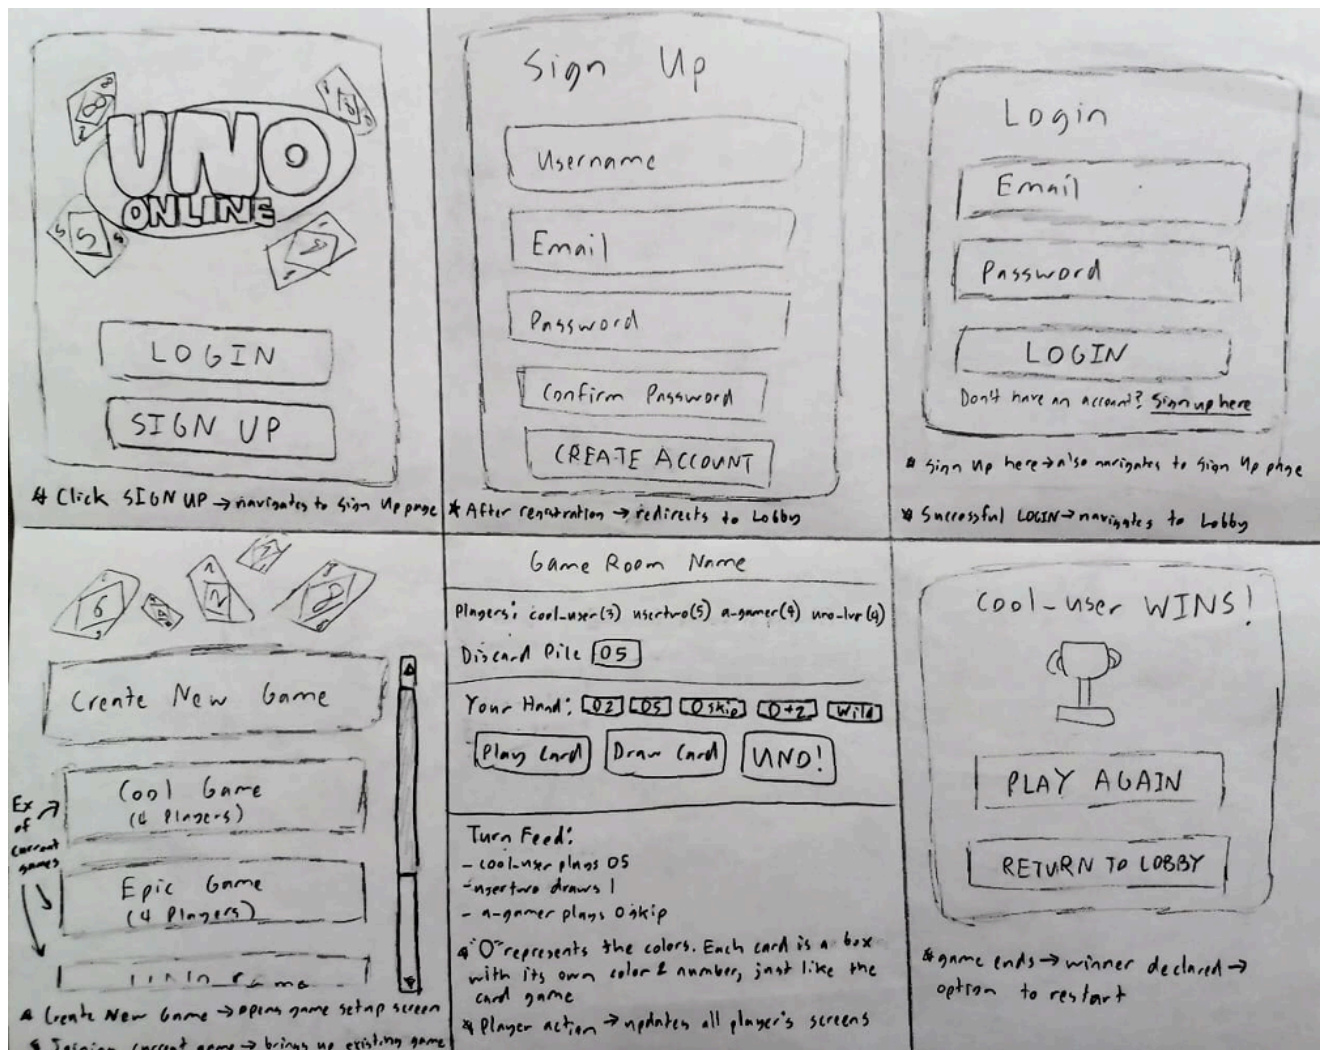 UNO
ONLINE
LOGIN
SIGN UP
* Click SIGN UP → navigates to Sign Up page
Sign Up
Username
Email
Password
Confirm Password
CREATE ACCOUNT
* After registration → redirects to Lobby
Login
Email
Password
LOGIN
Don't have an account? Sign up here
* Sign Up here → also navigates to Sign Up page
* Successful LOGIN → navigates to Lobby
Create New Game
Cool Game
(4 Players)
Epic Game
(4 Players)
Ex
of
current
games
* Create New Game → opens game setup screen
* Joining current game → brings up existing game
Game Room Name
Players: cool-user(3) usertwo(5) a-gamer(4) uno-lvr(9)
Discard Pile O5
Your Hand: O2 O5 O skip O+2 Wild
Play Card Draw Card UNO!
Turn Feed:
- cool-user plays O5
- usertwo draws 1
- a-gamer plays O skip
* "O" represents the colors. Each card is a box
with its own color & number, just like the
card game
* Player action → updates all player's screens
Cool-user WINS!
PLAY AGAIN
RETURN TO LOBBY
* game ends → winner declared →
option to restart